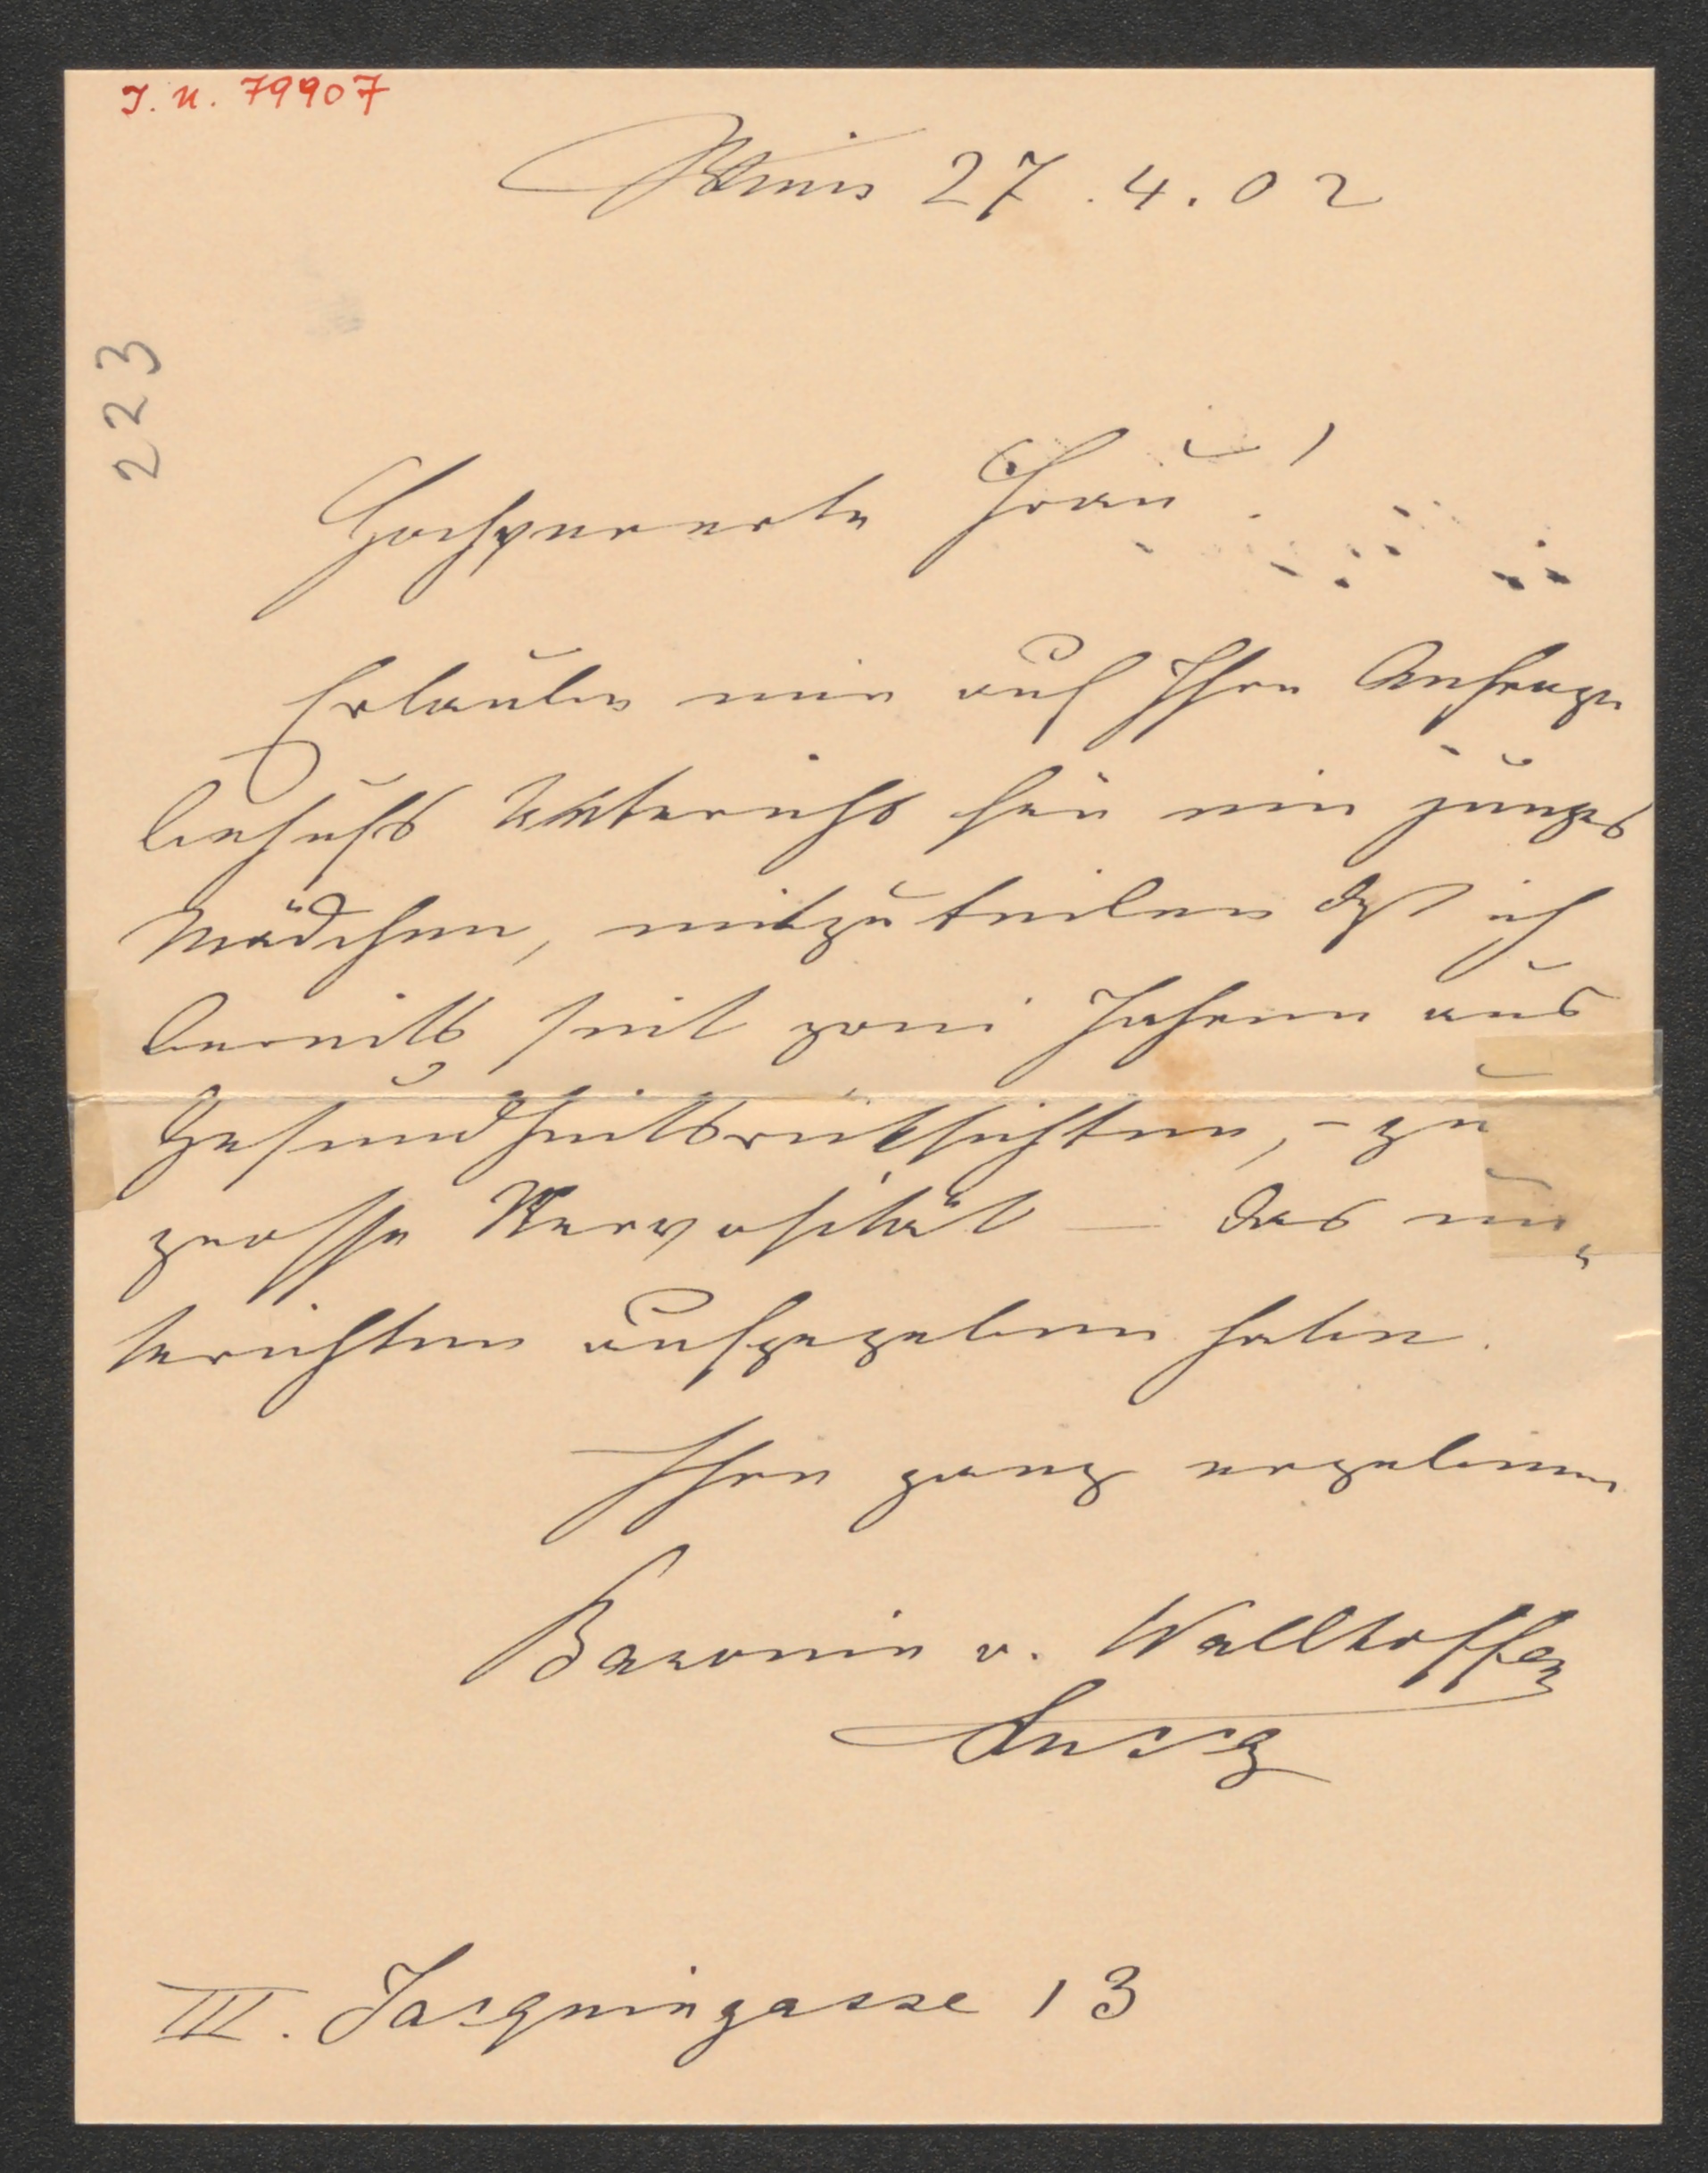 I. N. 79907
Wien 27.4.02
223
Hochvererte Frau!
Erlaube mir auf Ihre Anfrage
behufs Unterricht für ein junges
Mädchen, mitzuteilen dß ich
bereits seit zwei Jahren aus
Gesundheitsrücksichten, – zu
grosse Nervosität – das un„
terrichten aufgegeben habe.
Ihre ganz ergebene
Baronin v. Wallhoffen
III. Jacquingasse 13